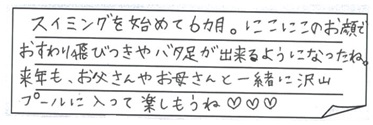 スイミングを始めて6カ月。にこにこのお顔で
おすわり飛びつきやバタ足が出来るようになったね。
来年も、お父さんやお母さんと一緒に沢山
プールに入って楽しもうね♡♡♡